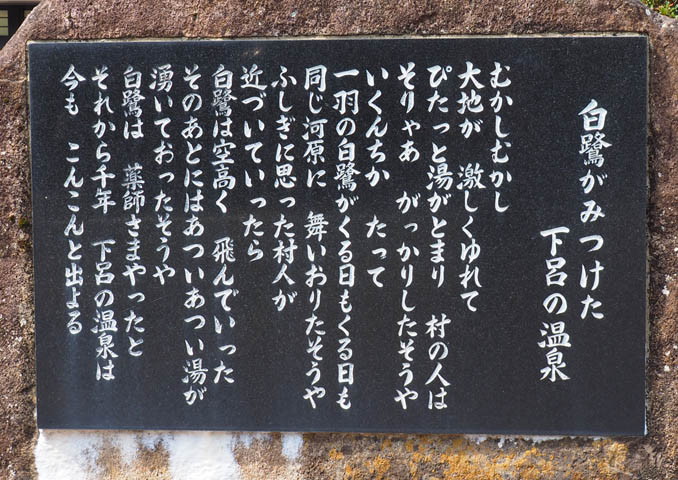 白鷺がみつけた
下呂の温泉
むかしむかし
大地が　激しくゆれて
ぴたっと湯がとまり　村の人は
そりゃあ　がっかりしたそうや
いくんちか　たって
一羽の白鷺がくる日もくる日も
同じ河原に　舞いおりたそうや
ふしぎに思った村人が
近づいていったら
白鷺は空高く　飛んでいった
そのあとにはあついあつい湯が
湧いておったそうや
白鷺は　薬師さまやったと
それから千年　下呂の温泉は
今も　こんこんと出よる